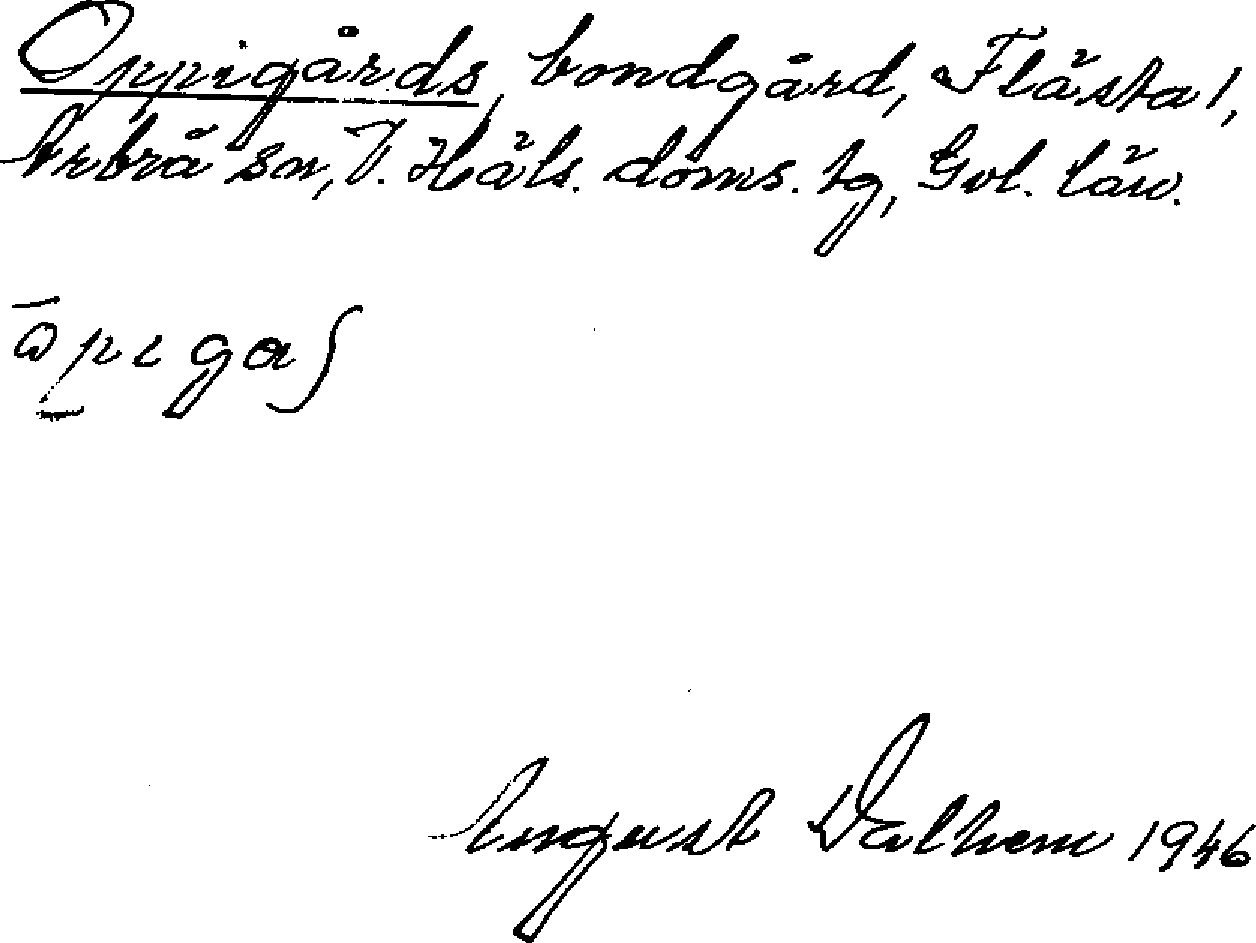 Oppigårds, bondgård, Flästa 1,
Arbrå sn, V. Häls. doms. tg, Gvl. län.
öpιgaʃ
August Dalhem 1946